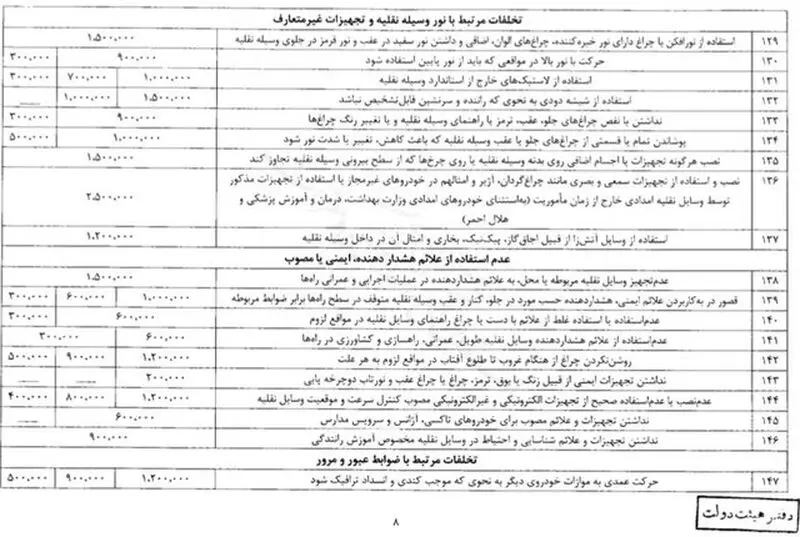 تخلفات مرتبط با نور وسیله نقلیه و تجهیزات غیرمتعارف
۱۲۹ استفاده از نورافکن یا چراغ دارای نور خیره‌کننده، چراغ‌های الوان، اضافی و داشتن نور سفید در عقب و نور قرمز در جلوی وسیله نقلیه ۱،۵۰۰،۰۰۰
۱۳۰ حرکت با نور بالا در مواقعی که باید از نور پایین استفاده شود ۹۰۰،۰۰۰ ۳۰۰،۰۰۰
۱۳۱ استفاده از لاستیک‌های خارج از استاندارد وسیله نقلیه ۱،۰۰۰،۰۰۰ ۷۰۰،۰۰۰ ۳۰۰،۰۰۰
۱۳۲ استفاده از شیشه دودی به نحوی که راننده و سرنشین قابل‌تشخیص نباشد ۱،۵۰۰،۰۰۰ ۱،۰۰۰،۰۰۰ ___
۱۳۳ نداشتن یا نقص چراغ‌های جلو، عقب، ترمز یا راهنمای وسیله نقلیه و یا تغییر رنگ چراغ‌ها ۹۰۰،۰۰۰ ۳۰۰،۰۰۰
۱۳۴ پوشاندن تمام یا قسمتی از چراغ‌های جلو یا عقب وسیله نقلیه که باعث کاهش، تغییر یا شدت نور شود ۱،۰۰۰،۰۰۰ ۵۰۰،۰۰۰
۱۳۵ نصب هرگونه تجهیزات یا اجسام اضافی روی بدنه وسیله نقلیه یا روی چرخ‌ها که از سطح بیرونی وسیله نقلیه تجاوز کند ۱،۵۰۰،۰۰۰
۱۳۶ نصب و استفاده از تجهیزات سمعی و بصری مانند چراغ‌گردان، آژیر و امثالهم در خودروهای غیرمجاز یا استفاده از تجهیزات مذکور
توسط وسایل نقلیه امدادی خارج از زمان مأموریت (به‌استثنای خودروهای امدادی وزارت بهداشت، درمان و آموزش پزشکی و ۲،۵۰۰،۰۰۰
هلال احمر)
۱۳۷ استفاده از وسایل آتش‌زا از قبیل اجاق‌گاز، پیک‌نیک، بخاری و امثال آن در داخل وسیله نقلیه ۱،۲۰۰،۰۰۰
عدم استفاده از علائم هشدار دهنده، ایمنی یا مصوب
۱۳۸ عدم‌تجهیز وسایل نقلیه مربوطه یا محل، به علائم هشداردهنده در عملیات اجرایی و عمرانی راه‌ها ۱،۵۰۰،۰۰۰
۱۳۹ قصور در به‌کاربردن علائم ایمنی، هشداردهنده حسب مورد در جلو، کنار و عقب وسیله نقلیه متوقف در سطح راه‌ها برابر ضوابط مربوطه ۱،۰۰۰،۰۰۰ ۶۰۰،۰۰۰ ۳۰۰،۰۰۰
۱۴۰ عدم‌استفاده یا استفاده غلط از علائم با دست یا چراغ راهنمای وسایل نقلیه در مواقع لزوم ۶۰۰،۰۰۰ ۳۰۰،۰۰۰
۱۴۱ عدم‌استفاده از علائم هشداردهنده وسایل نقلیه طویل، عمرانی، راهسازی و کشاورزی در راه‌ها ۶۰۰،۰۰۰ ۳۰۰،۰۰۰
۱۴۲ روشن‌نکردن چراغ از هنگام غروب تا طلوع آفتاب در مواقع لزوم به هر علت ۱،۲۰۰،۰۰۰ ۹۰۰،۰۰۰ ۵۰۰،۰۰۰
۱۴۳ نداشتن تجهیزات ایمنی از قبیل زنگ یا بوق، ترمز، چراغ یا چراغ عقب و نورتاب دوچرخه پایی ۲۰۰،۰۰۰ ___ ___
۱۴۴ عدم‌نصب یا عدم‌استفاده صحیح از تجهیزات الکترونیکی و غیرالکترونیکی مصوب کنترل سرعت و موقعیت وسایل نقلیه ۱،۲۰۰،۰۰۰ ۸۰۰،۰۰۰ ۴۰۰،۰۰۰
۱۴۵ نداشتن تجهیزات و علائم مصوب برای خودروهای تاکسی، آژانس و سرویس مدارس ۶۰۰،۰۰۰ ___
۱۴۶ نداشتن تجهیزات و علائم شناسایی و احتیاط در وسایل نقلیه مخصوص آموزش رانندگی ۹۰۰،۰۰۰
تخلفات مرتبط با ضوابط عبور و مرور
۱۴۷ حرکت عمدی به موازات خودروی دیگر به نحوی که موجب کندی و انسداد ترافیک شود ۱،۲۰۰،۰۰۰ ۹۰۰،۰۰۰ ۵۰۰،۰۰۰
۸
دفتر هیئت دولت